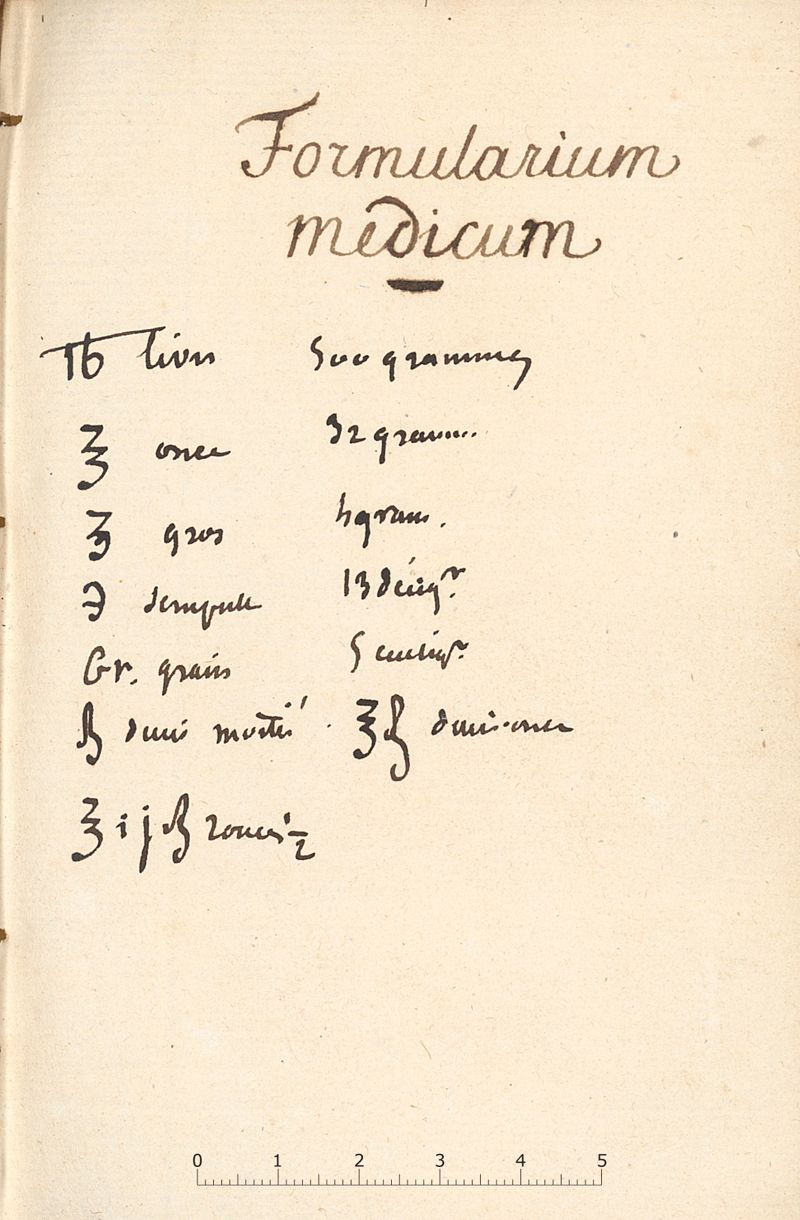 Formularium
medicum
℔ livre 500 grammes
℥ once 32 gramm.
ʒ gros 4 gram.
℈ scrupule 13 décigr.
Gr. grain 5 centigr.
ß demi moitié . ℥ß demi-once
℥ijß 2 onces ½
0 1 2 3 4 5